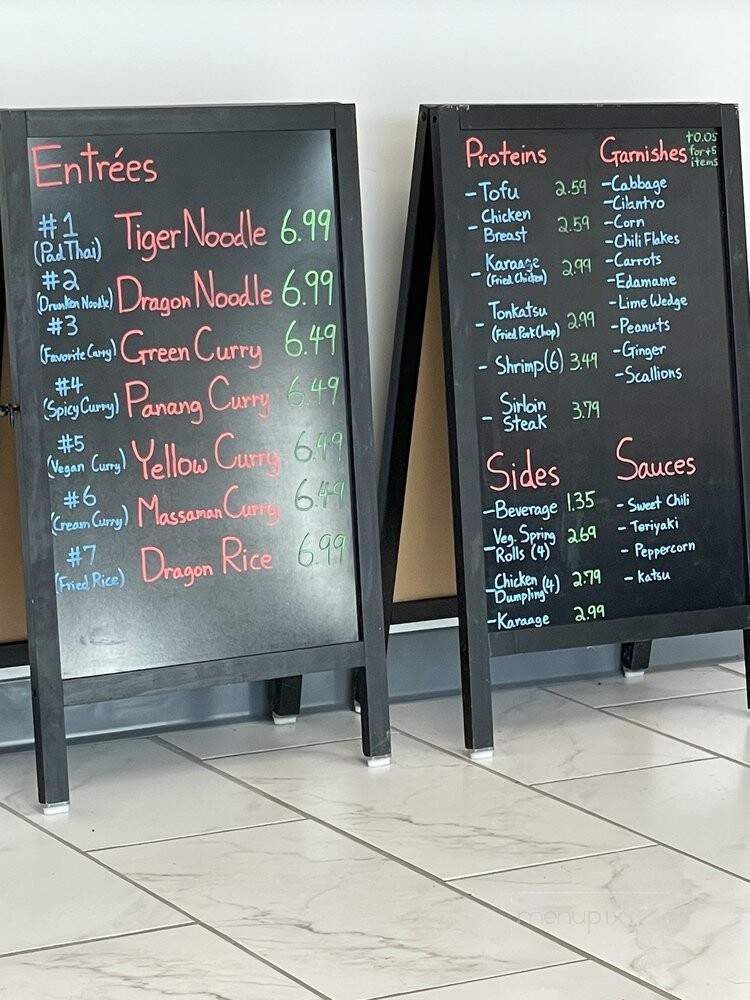 Entrées
#1 Tiger Noodle 6.99
(Pad Thai)
#2 Dragon Noodle 6.99
(Drunken Noodle)
#3 Green Curry 6.49
(Favorite Curry)
#4 Panang Curry 6.49
(Spicy Curry)
#5 Yellow Curry 6.49
(Vegan Curry)
#6 Massaman Curry 6.49
(Cream Curry)
#7 Dragon Rice 6.99
(Fried Rice)
Proteins
-Tofu 2.59
-Chicken
Breast 2.59
-Karaage 2.99
(Fried Chicken)
-Tonkatsu 2.99
(Fried Pork Chop)
-Shrimp(6) 3.49
-Sirloin
Steak 3.79
Garnishes
+0.05
for +5
items
-Cabbage
-Cilantro
-Corn
-Chili Flakes
-Carrots
-Edamame
-Lime Wedge
-Peanuts
-Ginger
-Scallions
Sides
-Beverage 1.35
-Veg. Spring
Rolls (4) 2.69
-Chicken
Dumpling(4) 2.79
-Karaage 2.99
Sauces
- Sweet Chili
- Teriyaki
- Peppercorn
- Katsu
menupix